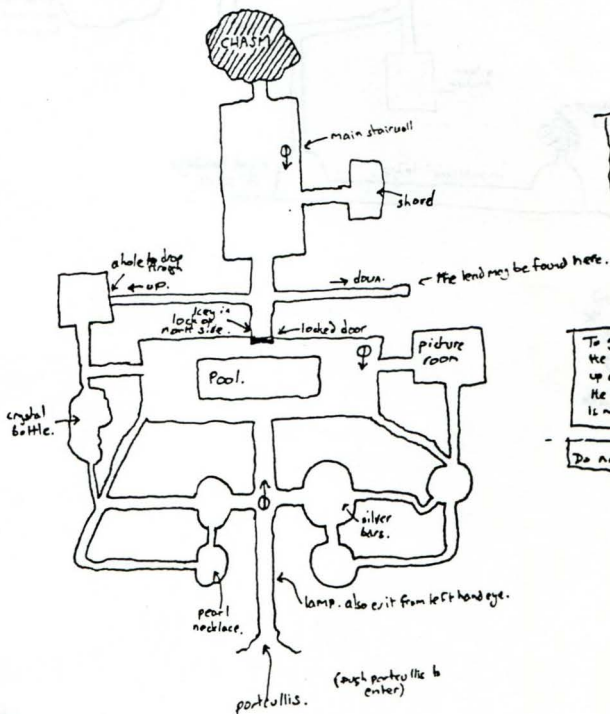 CHASM
main stairwell
shard
a hole to drop
through
← UP.
→ down.
the lend may be found here.
key in
lock on
north side.
locked door
Pool.
picture
room
crystal
bottle.
silver
bars.
pearl
necklace.
lamp. also exit from left hand eye.
portcullis.
(push portcullis to
enter)
To
the
up
the
is
Do